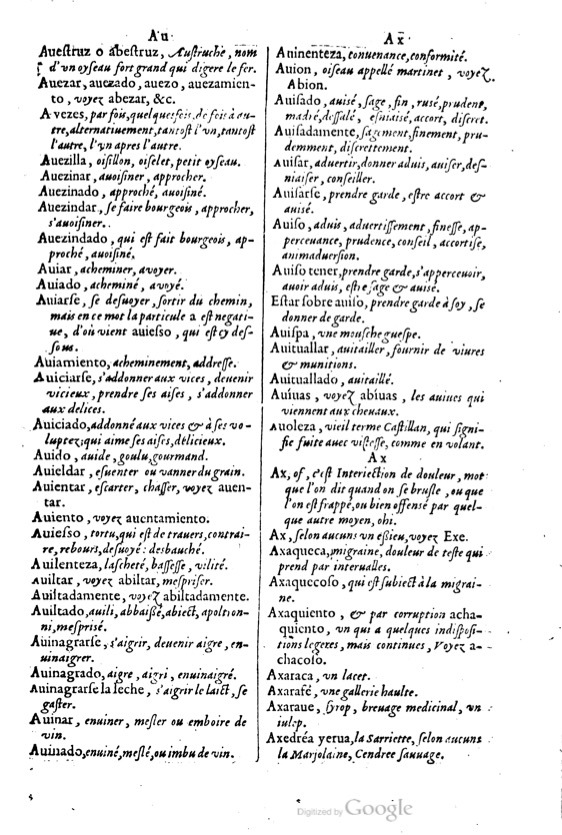 Au
Auestruz o abestruz, Austruche, nom
d'vn oyseau fort grand qui digere le fer.
Auezar, auezado, auezo, auezamien-
to, voyez abezar, &c.
A vezes, par fois, quelques fois, de fois à au-
tre, alternatiuement, tantost l'vn, tantost
l'autre, l'vn apres l'autre.
Auezilla, oisillon, oiselet, petit oyseau.
Auezinar, auoisiner, approcher.
Auezinado, approché, auoisiné.
Auezindar, se faire bourgeois, approcher,
s'auoisiner.
Auezindado, qui est fait bourgeois, ap-
proché, auoisiné.
Auiar, acheminer, avoyer.
Auiado, acheminé, avoyé.
Auiarse, se desuoyer, sortir du chemin,
mais en ce mot la particule a est negati-
ue, d'où vient auiesso, qui est cy des-
sous.
Auiamiento, acheminement, addresse.
Auiciarse, s'addonner aux vices, deuenir
vicieux, prendre ses aises, s'addonner
aux delices.
Auiciado, addonné aux vices & à ses vo-
luptez; qui aime ses aises, délicieux.
Auido, auide, goulu, gourmand.
Auieldar, esuenter ou vanner du grain.
Auientar, escarter, chasser, voyez auen-
tar.
Auiento, voyez auentamiento.
Auiesso, tortu, qui est de trauers, contrai-
re, rebours, desuoyé: desbauché.
Auilenteza, lascheté, bassesse, vilité.
Auiltar, voyez abiltar, mespriser.
Auiltadamente, voyez abiltadamente.
Auiltado, auili, abbaissé, abiect, apoltron-
ni, mesprisé.
Auinagrarse, s'aigrir, deuenir aigre, en-
uinaigrer.
Auinagrado, aigre, aigri, enuinaigré.
Auinagrarse la leche, s'aigrir le laict, se
gaster.
Auinar, enuiner, mesler ou emboire de
vin.
Auinado, enuiné, meslé, ou imbu de vin.
Ax
Auinenteza, conuenance, conformité.
Auion, oiseau appellé martinet, voyez
Abion.
Auisado, auisé, sage, fin, rusé, prudent,
madré, dessalé, esniaisé, accort, discret.
Auisadamente, sagement, finement, pru-
demment, discrettement.
Auisar, aduertir, donner aduis, auiser, des-
niaiser, conseiller.
Auisarse, prendre garde, estre accort &
auisé.
Auiso, aduis, aduertissement, finesse, ap-
perceuance, prudence, conseil, accortise,
animaduersion.
Auiso tener, prendre garde, s'apperceuoir,
auoir aduis, estre sage & auisé.
Estar sobre auiso, prendre garde à soy, se
donner de garde.
Auispa, vne mousche guespe.
Auituallar, auitailler, fournir de viures
& munitions.
Auituallado, auitaillé.
Auiuas, voyez abiuas, les auiues qui
viennent aux cheuaux.
Auoleza, vieil terme Castillan, qui signi-
fie fuite auec vistesse, comme en volant.
Ax
Ax, of, c'est Interiection de douleur, mot
que l'on dit quand on se brusle, ou que
l'on est frappé, ou bien offensé par quel-
que autre moyen, ohi.
Ax, selon aucuns vn essieu, voyez Exe.
Axaqueca, migraine, douleur de teste qui
prend par interualles.
Axaquecoso, qui est subiect à la migrai-
ne.
Axaquiento, & par corruption acha-
quiento, vn qui a quelques indisposi-
tions legeres, mais continues, Voyez a-
chacoso.
Axaraca, vn lacet.
Axarafé, vne gallerie haulte.
Axaraue, syrop, breuage medicinal, vn
iulep.
Axedréa yerua, la Sarriette, selon aucuns
la Marjolaine, Cendree sauuage.
Digitized by Google